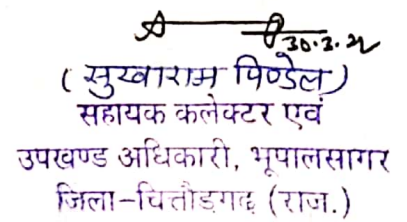 30.3.22
(सुखाराम पिण्डेल)
सहायक कलेक्टर एवं
उपखण्ड अधिकारी, भूपालसागर
जिला-चित्तौड़गढ़ (राज.)